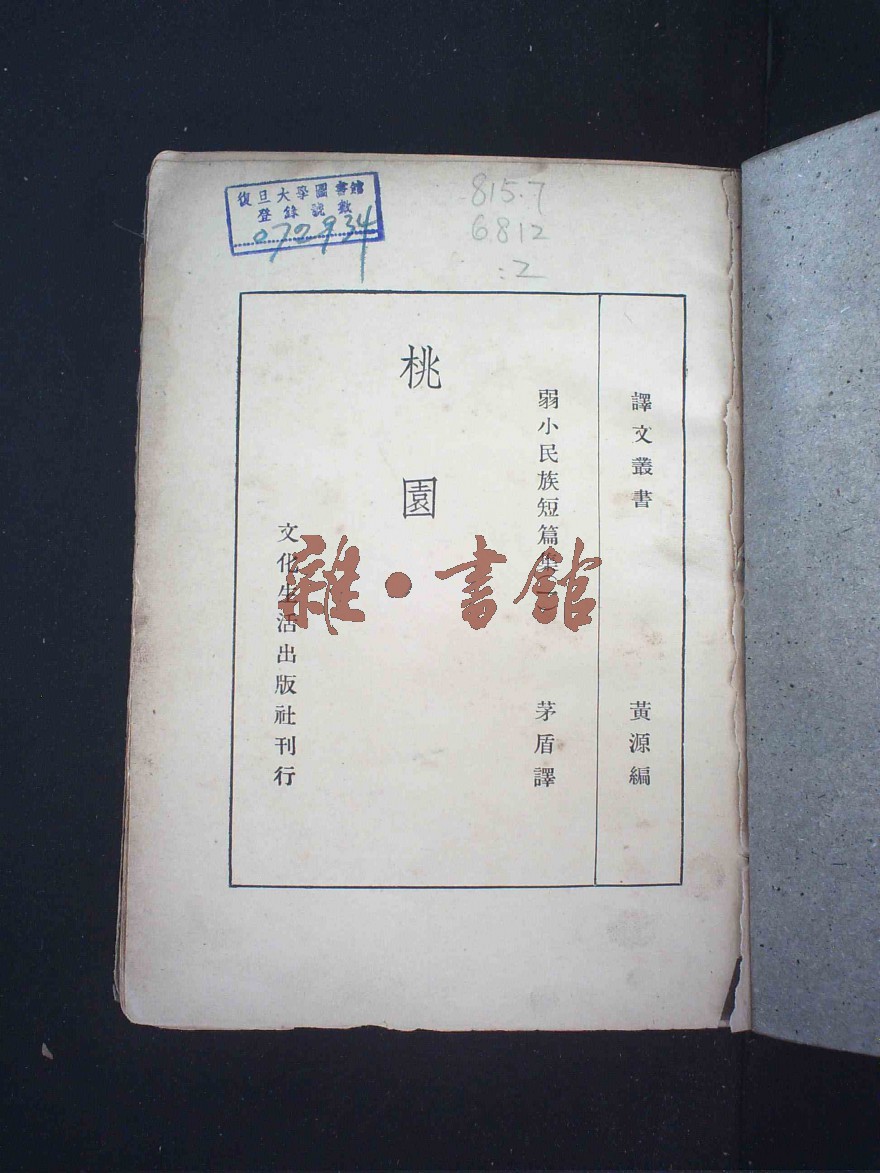 復旦大學圖書館
登錄號數
072934
815.7
6812
:2
譯文叢書 黃源編
弱小民族短篇集二 茅盾譯
桃園
文化生活出版社刊行
雜·書館